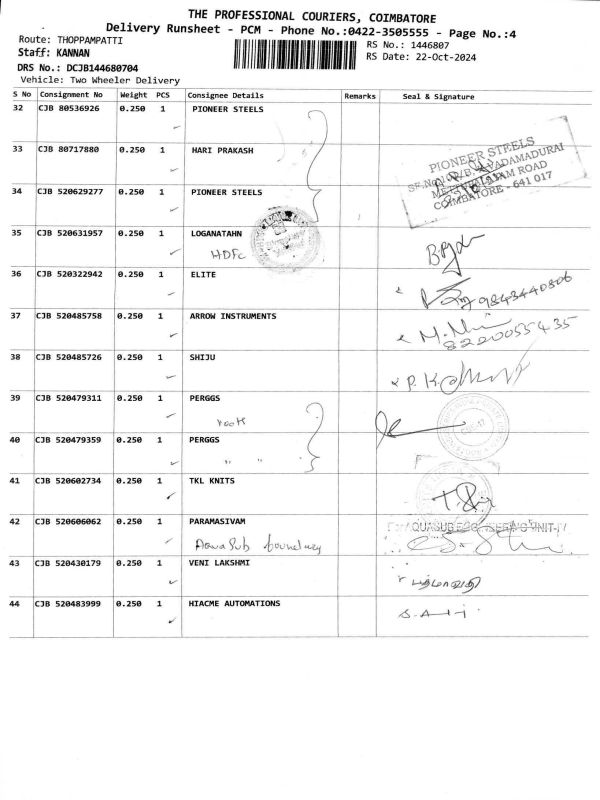 THE PROFESSIONAL COURIERS, COIMBATORE
Delivery Runsheet - PCM - Phone No.:0422-3505555 - Page No.:4
Route: THOPPAMPATTI
RS No.: 1446807
Staff: KANNAN
RS Date: 22-Oct-2024
DRS No.: DCJB144680704
Vehicle: Two Wheeler Delivery
S No Consignment No Weight PCS Consignee Details Remarks Seal & Signature
32 CJB 80536926 0.250 1 PIONEER STEELS
33 CJB 80717880 0.250 1 HARI PRAKASH
PIONEER STEELS
VADAMADURAI
ROAD
COIMBATORE - 641 017
34 CJB 520629277 0.250 1 PIONEER STEELS
35 CJB 520631957 0.250 1 LOGANATAHN
HDFC
36 CJB 520322942 0.250 1 ELITE
9843440806
37 CJB 520485758 0.250 1 ARROW INSTRUMENTS
8220055435
38 CJB 520485726 0.250 1 SHIJU
39 CJB 520479311 0.250 1 PERGGS
40 CJB 520479359 0.250 1 PERGGS
" "
41 CJB 520602734 0.250 1 TKL KNITS
42 CJB 520606062 0.250 1 PARAMASIVAM
AquaSub foundary
43 CJB 520430179 0.250 1 VENI LAKSHMI
பத்மாவதி
44 CJB 520483999 0.250 1 HIACME AUTOMATIONS